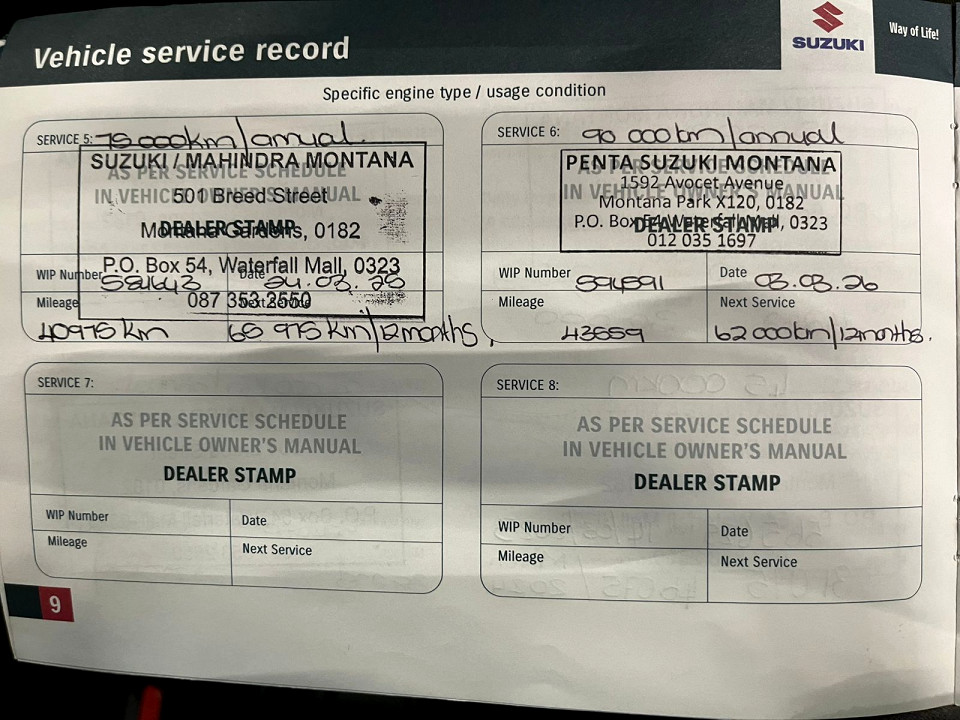 Vehicle service record
SUZUKI
Way of Life!
Specific engine type / usage condition
SERVICE 5: 75 000km/annual.
SUZUKI / MAHINDRA MONTANA
AS PER SERVICE SCHEDULE
501 Breed Street
IN VEHICLE OWNER'S MANUAL
Montana Gardens, 0182
DEALER STAMP
P.O. Box 54, Waterfall Mall, 0323
WIP Number
Date 24.03.25
087 353 2550
Mileage 40975 km
Next Service 65 975 km/12months,
SERVICE 6: 90 000km/annual
PENTA SUZUKI MONTANA
AS PER SERVICE SCHEDULE
1592 Avocet Avenue
IN VEHICLE OWNER'S MANUAL
Montana Park X120, 0182
P.O. Box 54 Waterfall Mall, 0323
DEALER STAMP
012 035 1697
WIP Number 594591
Date 03.03.26
Mileage 43559
Next Service 62 000km/12months.
SERVICE 7:
AS PER SERVICE SCHEDULE
IN VEHICLE OWNER'S MANUAL
DEALER STAMP
WIP Number
Date
Mileage
Next Service
SERVICE 8:
AS PER SERVICE SCHEDULE
IN VEHICLE OWNER'S MANUAL
DEALER STAMP
WIP Number
Date
Mileage
Next Service
9